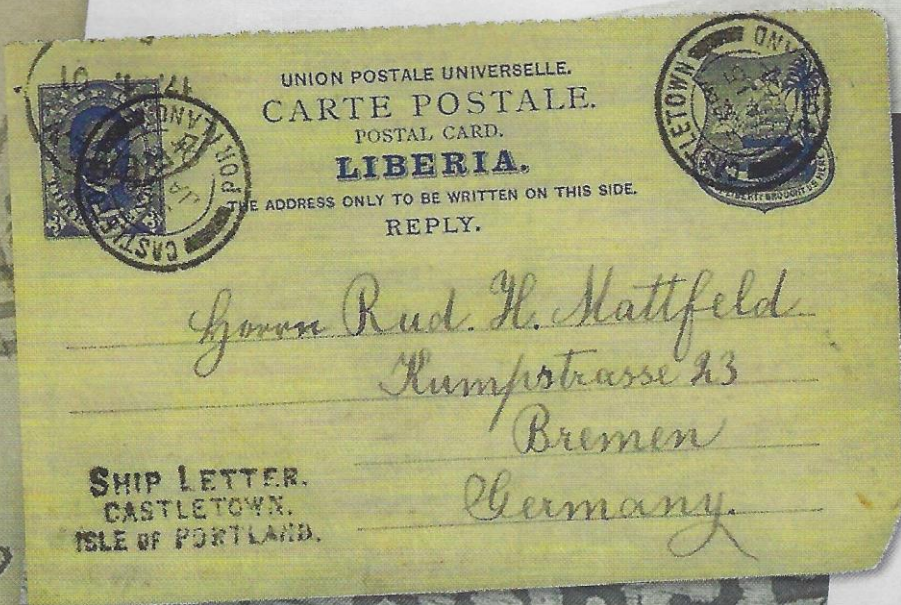 UNION POSTALE UNIVERSELLE.
CARTE POSTALE.
POSTAL CARD.
LIBERIA.
THE ADDRESS ONLY TO BE WRITTEN ON THIS SIDE.
REPLY.
CASTLETOWN
PORTLAND
CASTLETOWN
Herrn Rud. H. Mattfeld
Kumpstrasse 23
Bremen
Germany.
SHIP LETTER.
CASTLETOWN.
ISLE OF PORTLAND.